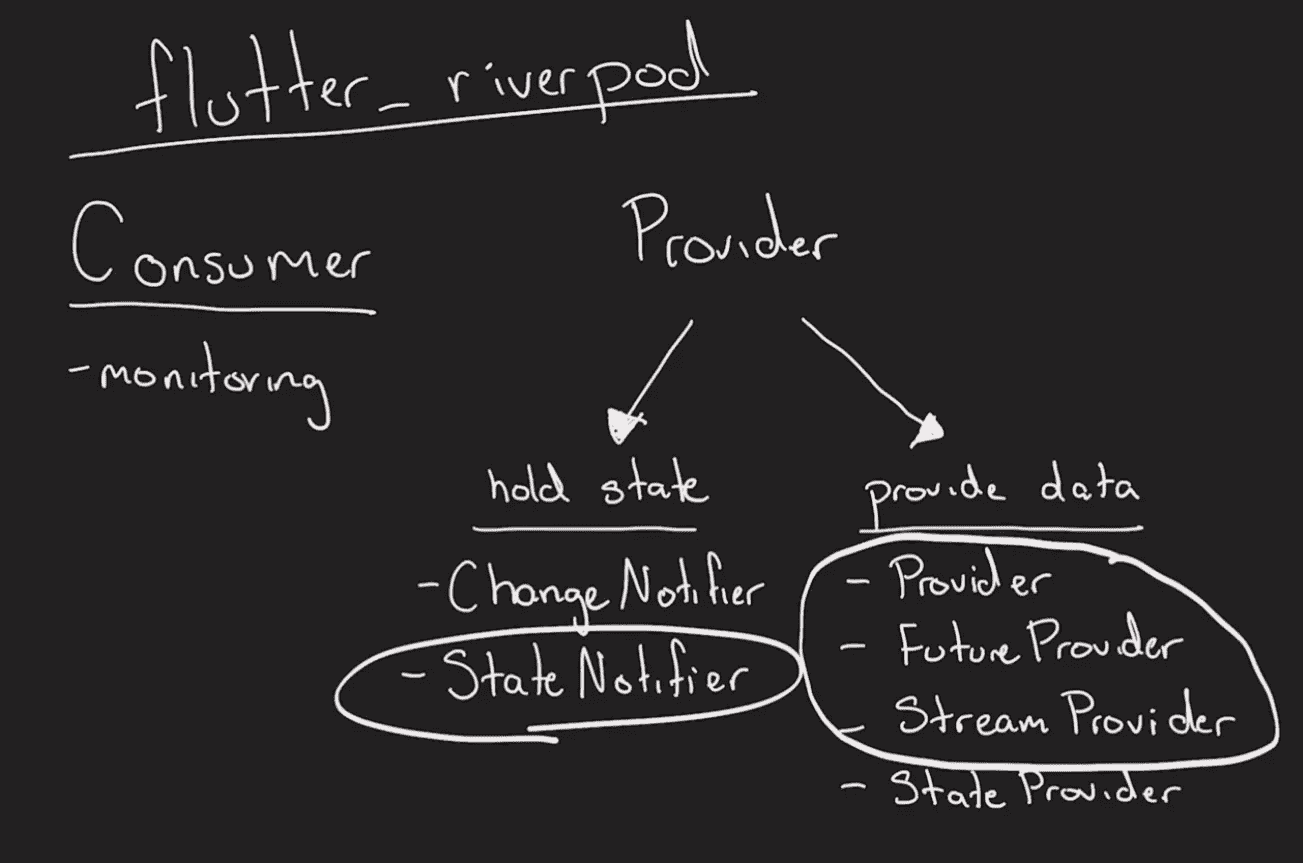 flutter_riverpod
Consumer
-monitoring
Provider
hold state
-ChangeNotifier
-StateNotifier
provide data
- Provider
- FutureProvider
- StreamProvider
- StateProvider